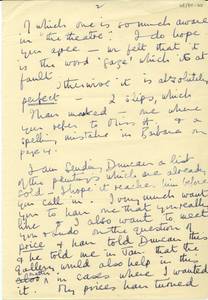 2
of which one is so much aware
in the theatre. I do hope
you agree — we felt that it
is the word 'gaze' which is at
fault
otherwise it is absolutely
perfect — 2 slips, which
I have marked — one where
you refer to Miss H, & a
spelling mistake in Barbara on
page 4.
I am sending Duncan a list
of the paintings which are already
sold & I hope it reaches him before
you call in. I very much want
you to have one that you really
like & I also want to meet
you on the question of
price & have told Duncan this
& he told me in Jan. that the
gallery would also help in this
in cases where I wanted
it. My prices have turned